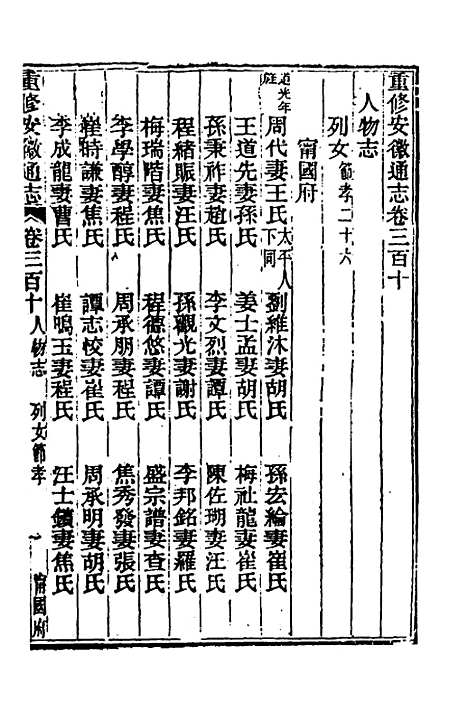 重修安徽通志卷三百十
人物志
列女節孝二十六
甯國府
道光年旌
周代妻王氏太平人下同 劉維沐妻胡氏 孫宏綸妻崔氏
王道先妻孫氏 姜士孟妻胡氏 梅社龍妻崔氏
孫秉祚妻趙氏 李文烈妻譚氏 陳佐瑚妻汪氏
程緒賑妻汪氏 孫觀光妻謝氏 李邦銘妻羅氏
梅瑞階妻焦氏 程德悠妻譚氏 盛宗譜妻查氏
李學醇妻程氏 周承朋妻程氏 焦秀發妻張氏
崔時謙妻焦氏 譚志恔妻崔氏 周承明妻胡氏
李成龍妻曹氏 崔鳴玉妻程氏 汪士鑌妻焦氏
重修安徽通志 卷三百十 人物志 列女節孝 一 甯國府